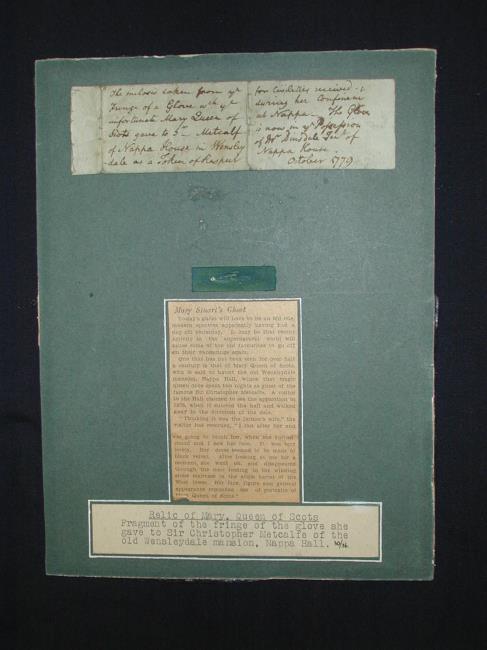 The inclosed taken from ye
Fringe of a Glove wch ye
unfortunate Mary Queen of
Scots gave to Sr. Metcalf
of Nappa House in Wensley
dale as a Token of Respect
for Civilities received
during her Confinemt
at Nappa. The Glove
is now in ye Possession
of Mr. of
Nappa House.
October 1779
Mary Stuart's Ghost
Today's ghost will have to be an old one,
modern spectres apparently having had a
day off yesterday. It may be that recent
activity in the supernatural world will
cause some of the old favourites to go off
on their wanderings again.
One that has not been seen for over half
a century is that of Mary Queen of Scots,
who is said to haunt the old Wensleydale
mansion, Nappa Hall, where that tragic
queen once spent two nights as guest of the
famous Sir Christopher Metcalfe. A visitor
to the Hall claimed to see the apparition in
1878, when it entered the hall and walked
away in the direction of the dais.
"Thinking it was the farmer's wife," the
visitor has recorded, "I ran after her and
was going to touch her, when she turned
round and I saw her face. It was very
lovely. Her dress seemed to be made of
black velvet. After looking at me for a
moment, she went on and disappeared
through the door leading to the winding
stone staircase in the angle turret of the
West tower. Her face, figure and general
appearance reminded me of portraits of
Mary Queen of Scots."
Relic of Mary, Queen of Scots
Fragment of the fringe of the glove she
gave to Sir Christopher Metcalfe of the
old Wensleydale mansion, Nappa Hall.